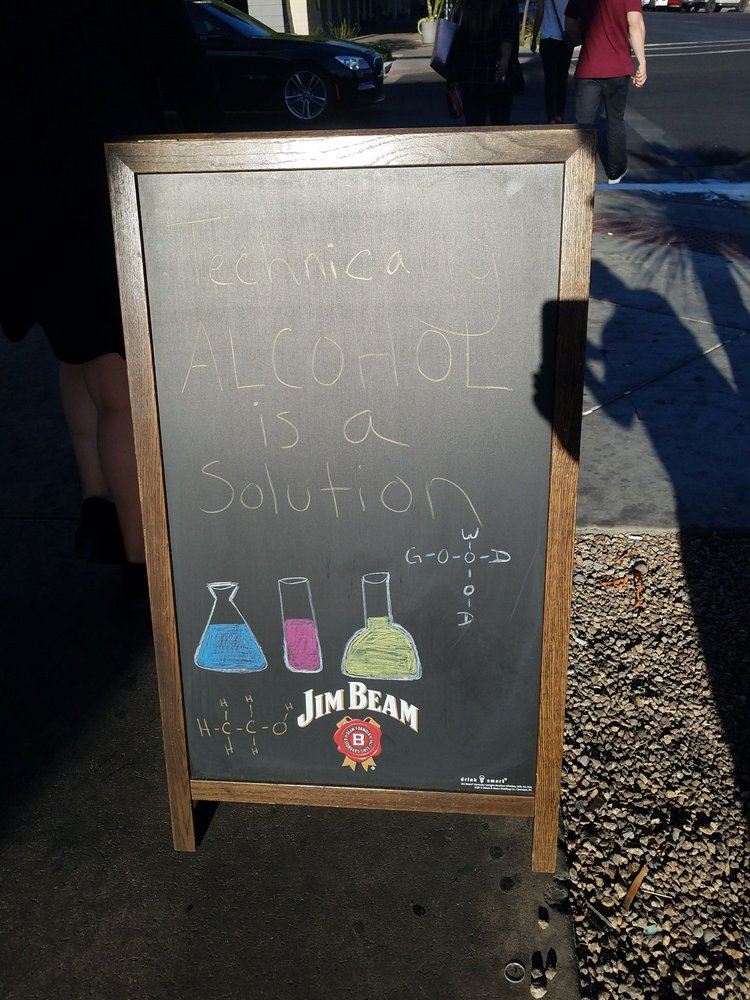 Technically
ALCOHOL
is a
Solution
W
G-O-O-D
O
D
H
H
H
H-C-C-O
H
H
JIM BEAM
B
drink smart®